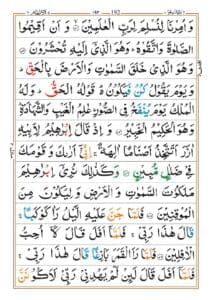 وَاُمِرْنَا لِنُسْلِمَ لِرَبِّ الْعٰلَمِيْنَ ۙ وَاَنْ اَقِيْمُوا
الصَّلٰوةَ وَاتَّقُوْهُ ؕ وَهُوَ الَّذِيْۤ اِلَيْهِ تُحْشَرُوْنَ
وَهُوَ الَّذِيْ خَلَقَ السَّمٰوٰتِ وَالْاَرْضَ بِالْحَقِّ ؕ
وَيَوْمَ يَقُوْلُ كُنْ فَيَكُوْنُ ؕ قَوْلُهُ الْحَقُّ ؕ وَلَهُ
الْمُلْكُ يَوْمَ يُنْفَخُ فِي الصُّوْرِ ؕ عٰلِمُ الْغَيْبِ وَالشَّهَادَةِ ؕ
وَهُوَ الْحَكِيْمُ الْخَبِيْرُ وَاِذْ قَالَ اِبْرٰهِيْمُ لِاَبِيْهِ
اٰزَرَ اَتَتَّخِذُ اَصْنَامًا اٰلِهَةً ۚ اِنِّيْۤ اَرٰىكَ وَقَوْمَكَ
فِيْ ضَلٰلٍ مُّبِيْنٍ وَكَذٰلِكَ نُرِيْۤ اِبْرٰهِيْمَ
مَلَكُوْتَ السَّمٰوٰتِ وَالْاَرْضِ وَلِيَكُوْنَ مِنَ
الْمُوْقِنِيْنَ فَلَمَّا جَنَّ عَلَيْهِ الَّيْلُ رَاٰ كَوْكَبًا ۚ
قَالَ هٰذَا رَبِّيْ ۚ فَلَمَّاۤ اَفَلَ قَالَ لَاۤ اُحِبُّ
الْاٰفِلِيْنَ فَلَمَّا رَاَ الْقَمَرَ بَازِغًا قَالَ هٰذَا رَبِّيْ ۚ
فَلَمَّاۤ اَفَلَ قَالَ لَئِنْ لَّمْ يَهْدِنِيْ رَبِّيْ لَاَكُوْنَنَّ